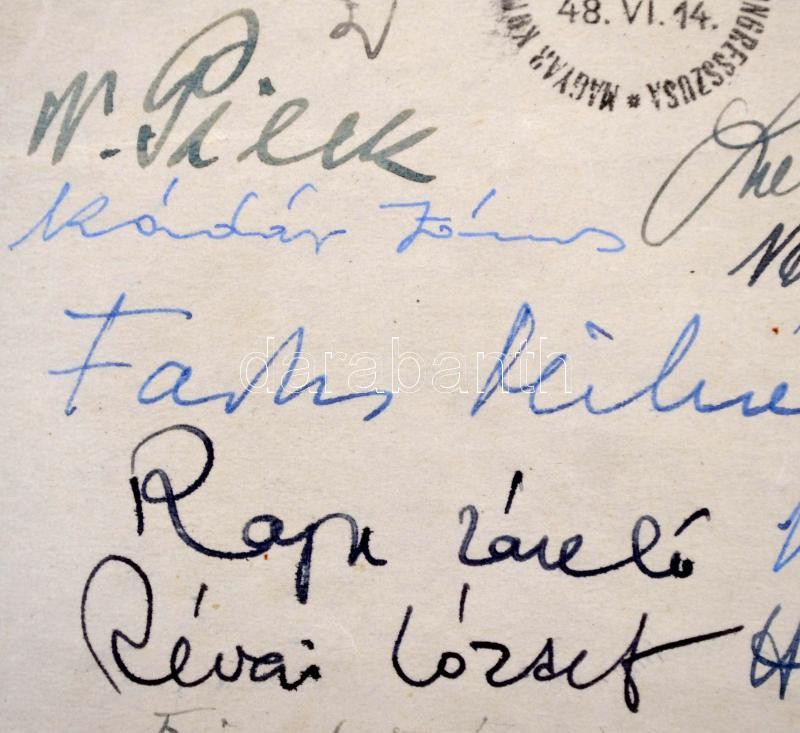 48. VI. 14.
MAGYAR KOM
ONGRESSZUSA *
W. Pieck
Kádár János
Farkas Mihá
Rajk László
Révai József
darabanth